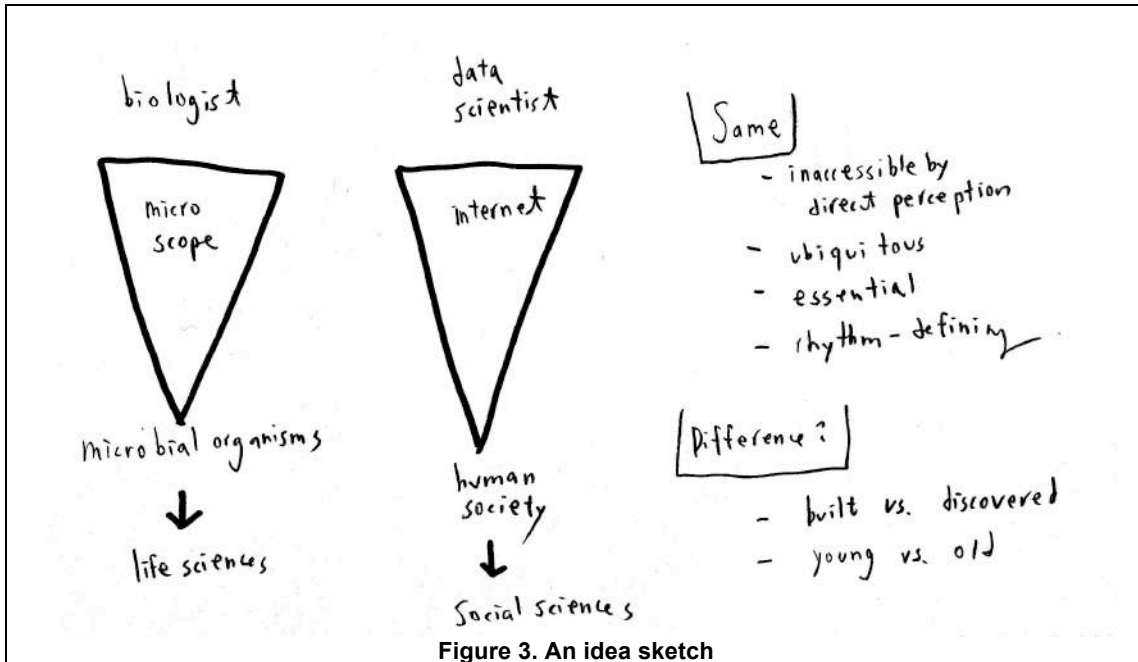 biologist
micro
scope
microbial organisms
life sciences
data
scientist
internet
human
society
social sciences
Same
- inaccessible by
direct perception
- ubiquitous
- essential
- rhythm-defining
Difference?
- built vs. discovered
- young vs. old
Figure 3. An idea sketch